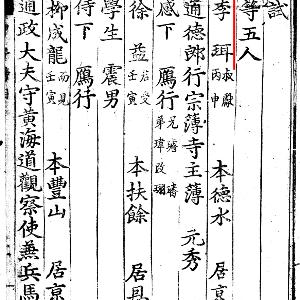 試
等五人
李珥 叔獻 丙申 本德水 居京
通德郎行宗簿寺主簿 元秀
感下 鴈行 兄璿 璠 弟瑋 改瑀
徐益 君受 壬寅 本扶餘 居
學生 震男
侍下 鴈行
柳成龍 而見 壬寅 本豐山 居京
通政大夫守黃海道觀察使兼兵馬